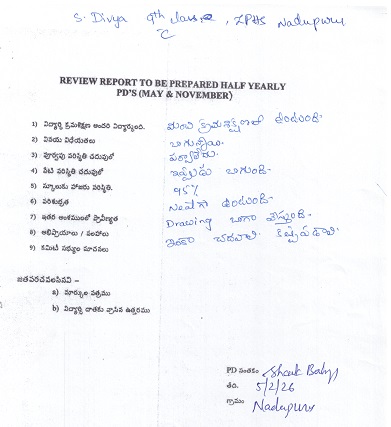 S. Divya 9th class, ZPHS Nadupuru
"C"
REVIEW REPORT TO BE PREPARED HALF YEARLY
PD'S (MAY & NOVEMBER)
1) విద్యార్థి క్రమశిక్షణ అందరి విద్యార్థులంది. మంచి క్రమశిక్షణతో ఉంటుంది.
2) వినయ విధేయతలు బాగున్నాయి.
3) పూర్వపు పరిస్థితి చదువులో పర్వాలేదు.
4) నేటి పరిస్థితి చదువులో ఇప్పుడు బాగుంది.
5) స్కూలుకు హాజరు పరిస్థితి. 95%
6) పరిశుభ్రత Neatగా ఉంటుంది.
7) ఇతర అంశములలో ప్రావీణ్యత Drawing బాగా వేస్తుంది.
8) అభిప్రాయాలు / సలహాలు ఇంకా చదవాలి. కష్టపడాలి.
9) కమిటీ సభ్యుల సూచనలు
జతపరచవలసినవి –
a) మార్కుల పత్రము
b) విద్యార్థి దాతకు వ్రాసిన ఉత్తరము
PD సంతకం Shaik Baby
తేది. 5/2/26
గ్రామం Nadupuru